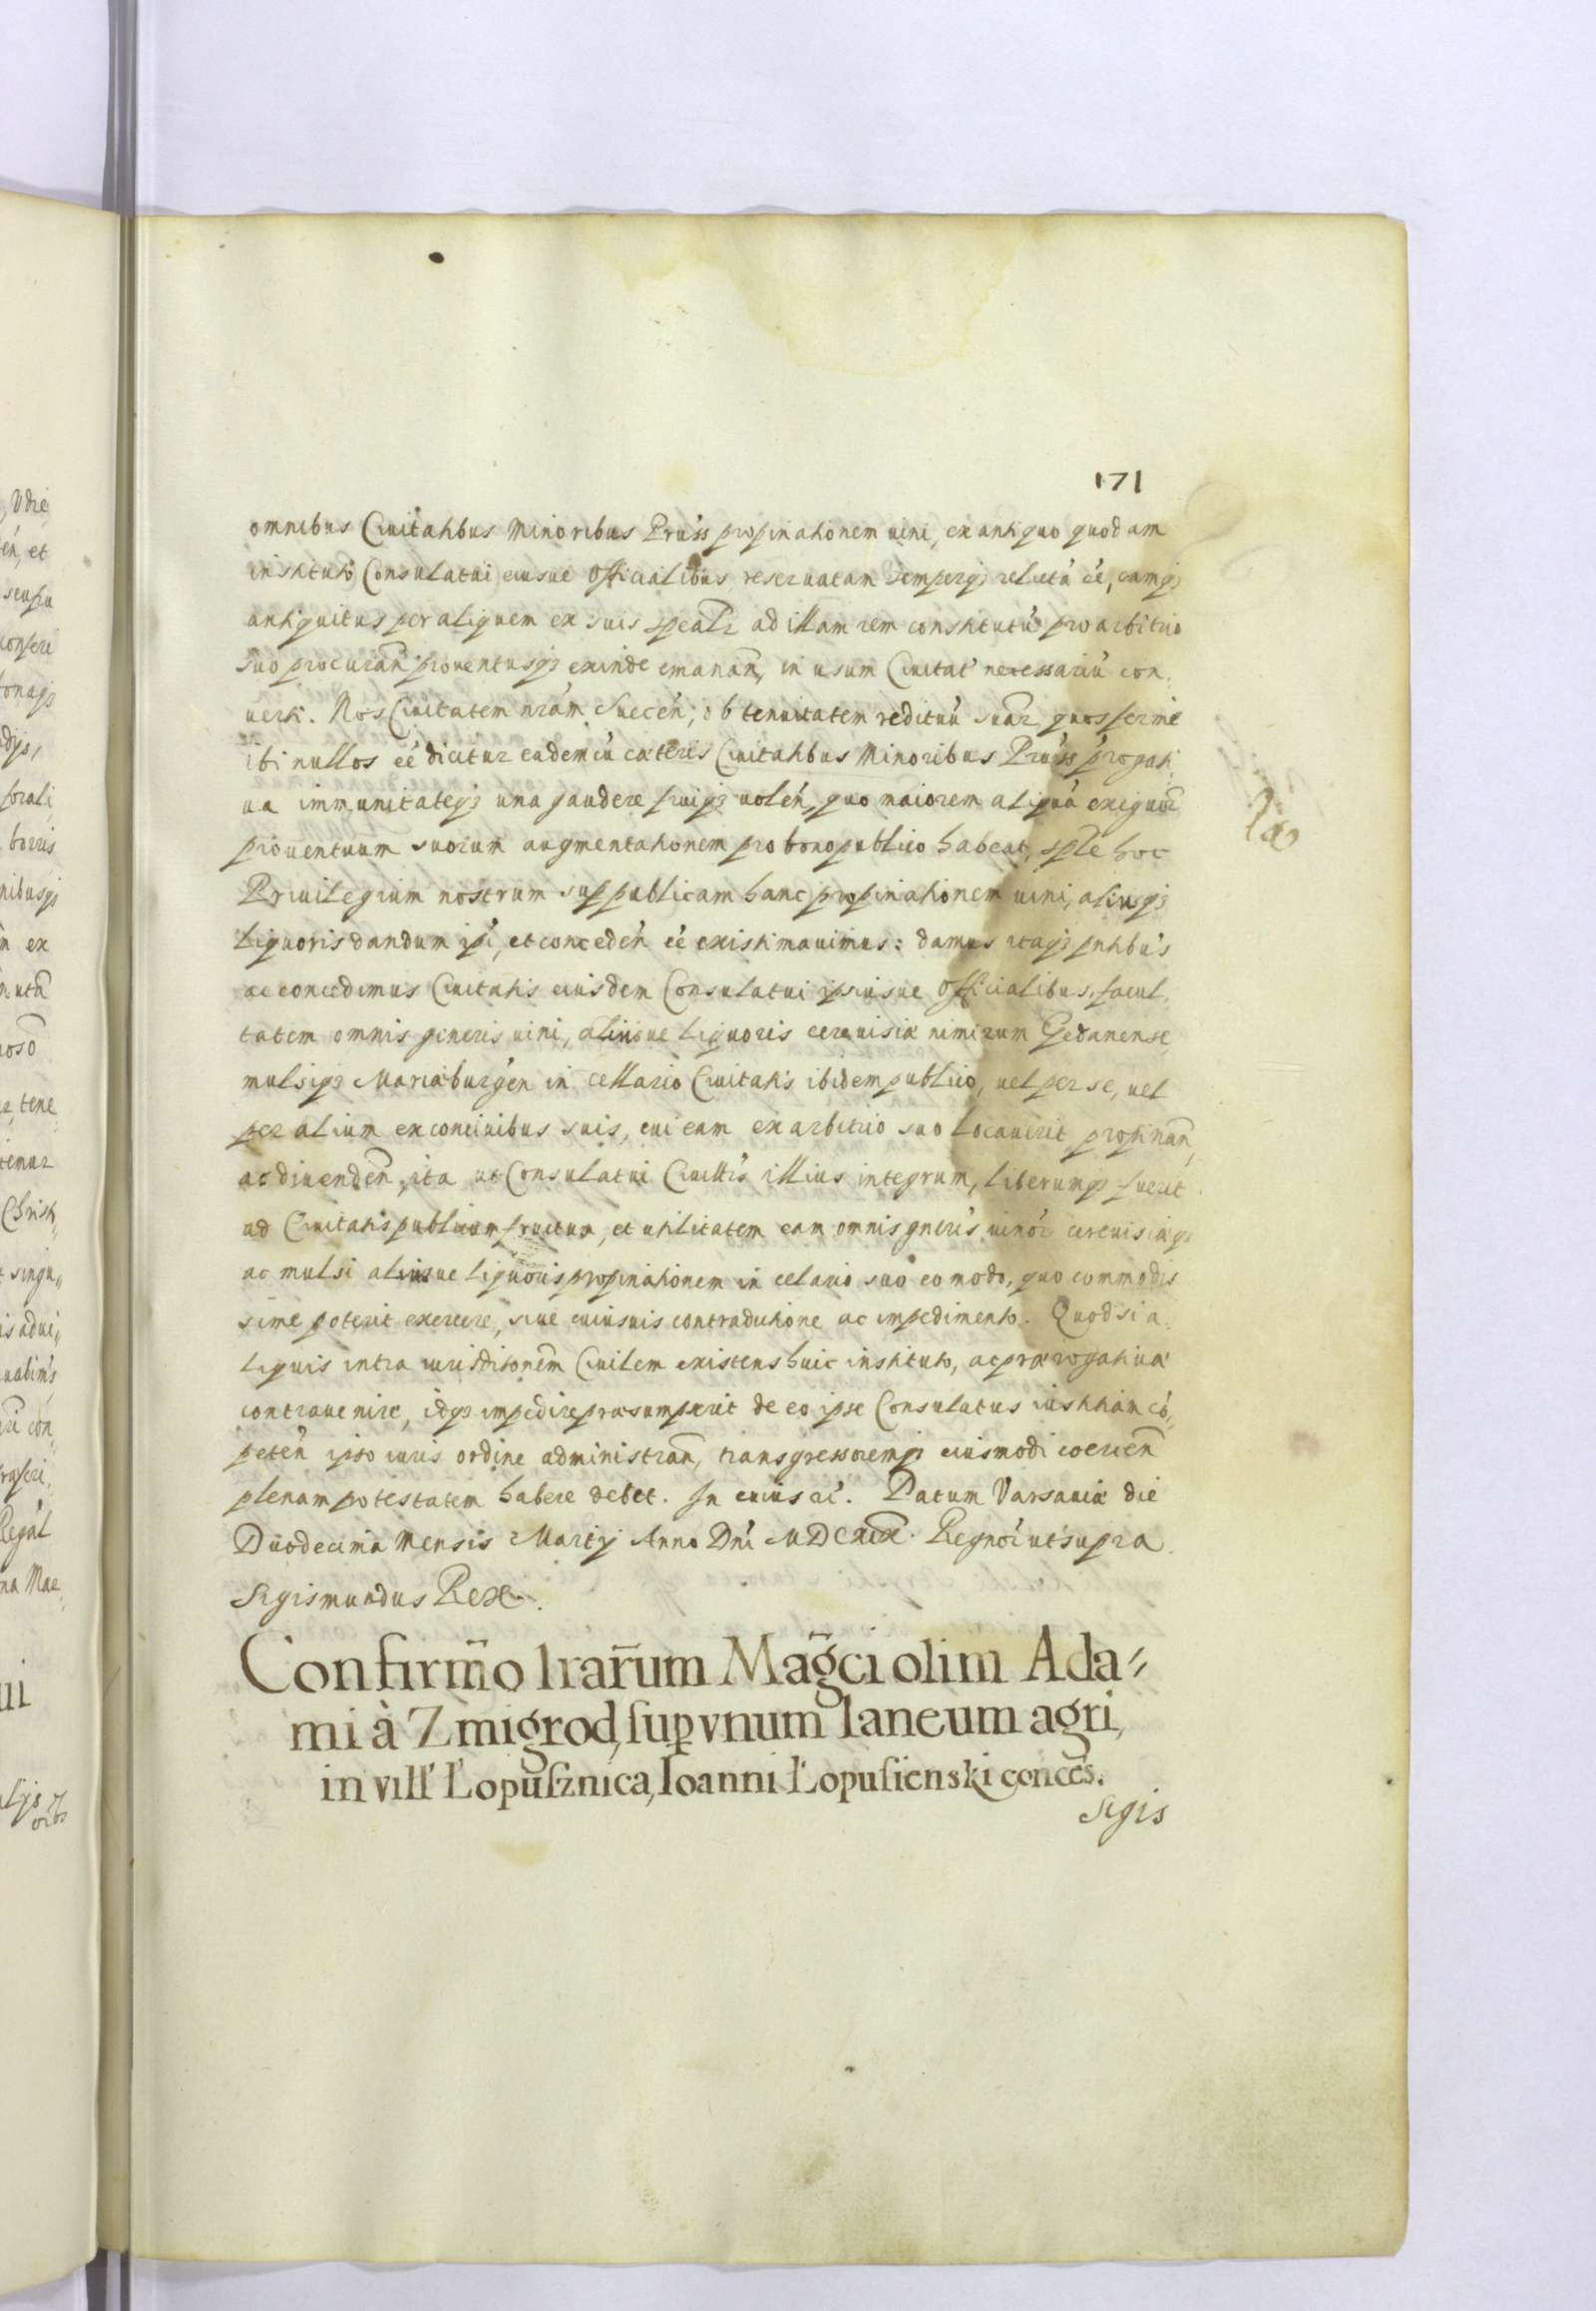 171
omnibus Ciuitatibus Minoribus Pruss propinationem uini, ex antiquo quodam
instituto Consulatui eiusue Officialibus reseruatam semperq; relictã eé, eamq;
antiquitus per aliquem ex suis ad illam rem constitutũ pro arbitrio
suo procurañ prouentusq; exinde emanañ, in usum Ciuitat' necessariũ con,
uerti. Nos Ciuitatem nrãm Sueceń, ob tenuitatem redituũ suar quos ferme
ibi nullos eé dicitur eadem cũ cæteris Ciuitatibus Minoribus Pruss progati,
ua immunitateq; una gaudere fruiq; uoleń, quo maiorem aliquã exiguor
prouentuum suorum augmentationem pro bono publico habeat, hoc
Priuilegium nostrum sup publicam hanc propinationem uini, aliusq;
Liquoris dandum ipi, et concedeń eé existimauimus: damus itaq; pntibus
ac concedimus Ciuitatis eiusdem Consulatui ipsiusue Officialibus, facul,
tatem omnis generis uini, aliusue Liquoris ceruisiæ nimirum Gedanense,
mulsiq; Mariæburgeń in cellario Ciuitatis ibidem publico, uel per se, uel
per alium ex conciuibus suis, cui eam ex arbitrio suo Locauerit propinañ,
ac diuendeñ, ita ut Consulatui Ciuittis illius integrum, liberumq; fuerit
ad Ciuitatis publicum fructum, et utilitatem eam omnis gneris uinor ceruisiæq;
ac mulsi aliusue liquoris propinationem in celario suo eo modo, quo commodis
sime poterit exercere, siue cuiusuis contradictione ac impedimento. Quodsi a,
liquis intra iurisditionem Ciuilem existens huic instituto, ac prærogatiuæ
contrauenire, idq; impedire præsumpserit de eo ipse Consulatus iustitiam cõ,
peteń isto iuris ordine administrañ, transgressoremq; eiusmodi coerceñ
plenam potestatem habere debet. In cuius ei. Datum Varsauiæ die
Duodecima Mensis Martij Anno Dni MDCXIX. Regnor ut supra.
Sigismundus Rex.
Confirm̃o lrar̃um Mag̃ci olim Ada⸗
mi à Zmigrod, sup vnum laneum agri,
in vill' Łopusznica, Ioanni Łopusienski conces.
Sigis